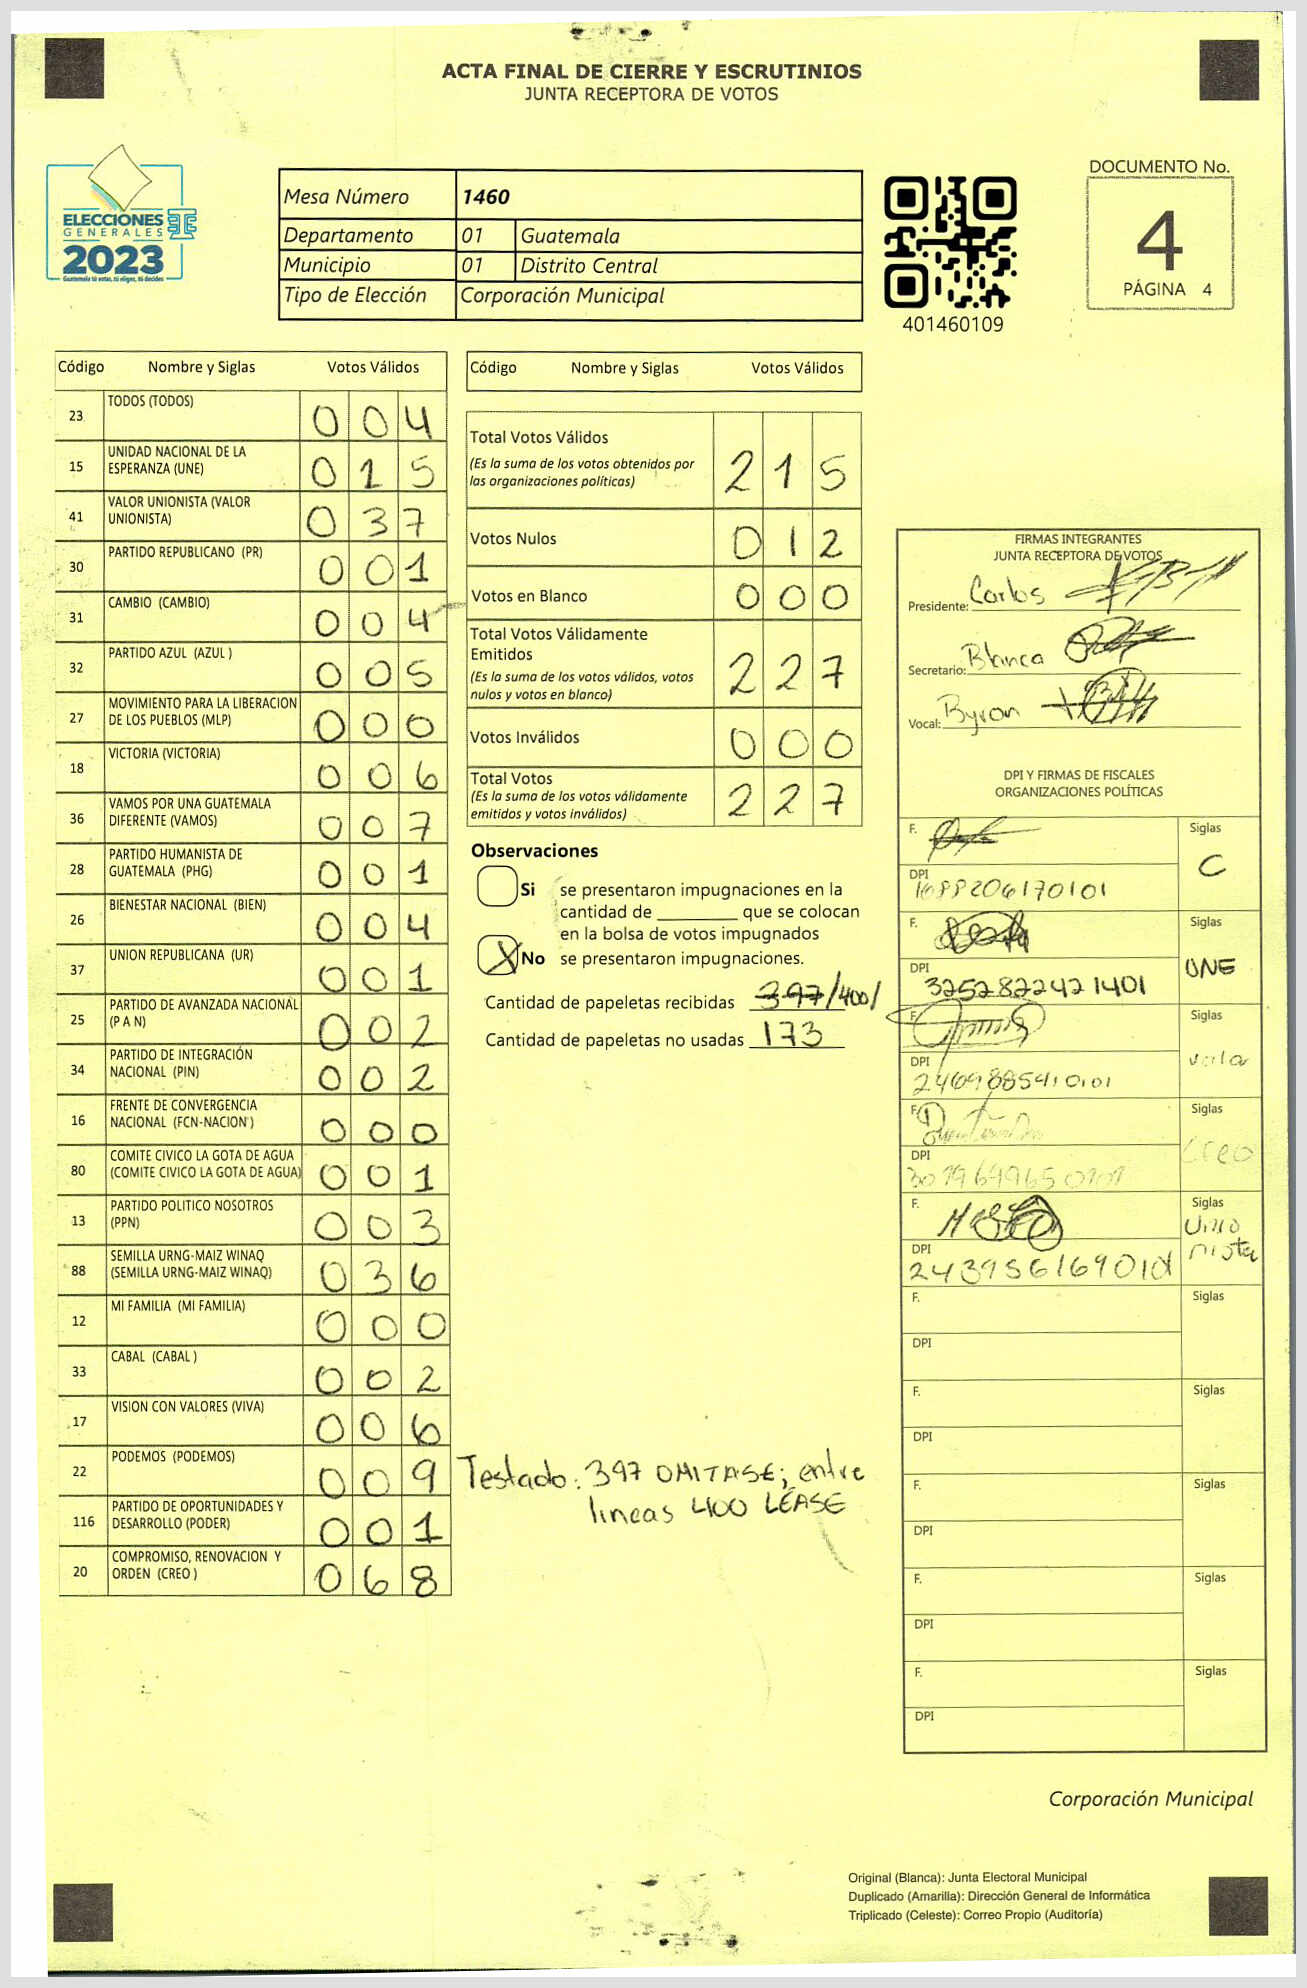 ACTA FINAL DE CIERRE Y ESCRUTINIOS
JUNTA RECEPTORA DE VOTOS
ELECCIONES
GENERALES
2023
Guatemala tú votas, tú eliges, tú decides
Mesa Número 1460
Departamento 01 Guatemala
Municipio 01 Distrito Central
Tipo de Elección Corporación Municipal
401460109
DOCUMENTO No.
4
PÁGINA 4
Código Nombre y Siglas Votos Válidos
23 TODOS (TODOS) 0 0 4
15 UNIDAD NACIONAL DE LA
ESPERANZA (UNE) 0 1 5
41 VALOR UNIONISTA (VALOR
UNIONISTA) 0 3 7
30 PARTIDO REPUBLICANO (PR) 0 0 1
31 CAMBIO (CAMBIO) 0 0 4
32 PARTIDO AZUL (AZUL ) 0 0 5
27 MOVIMIENTO PARA LA LIBERACION
DE LOS PUEBLOS (MLP) 0 0 0
18 VICTORIA (VICTORIA) 0 0 6
36 VAMOS POR UNA GUATEMALA
DIFERENTE (VAMOS) 0 0 7
28 PARTIDO HUMANISTA DE
GUATEMALA (PHG) 0 0 1
26 BIENESTAR NACIONAL (BIEN) 0 0 4
37 UNION REPUBLICANA (UR) 0 0 1
25 PARTIDO DE AVANZADA NACIONAL
(P A N) 0 0 2
34 PARTIDO DE INTEGRACIÓN
NACIONAL (PIN) 0 0 2
16 FRENTE DE CONVERGENCIA
NACIONAL (FCN-NACION ) 0 0 0
80 COMITE CIVICO LA GOTA DE AGUA
(COMITE CIVICO LA GOTA DE AGUA) 0 0 1
13 PARTIDO POLITICO NOSOTROS
(PPN) 0 0 3
88 SEMILLA URNG-MAIZ WINAQ
(SEMILLA URNG-MAIZ WINAQ) 0 3 6
12 MI FAMILIA (MI FAMILIA) 0 0 0
33 CABAL (CABAL ) 0 0 2
17 VISION CON VALORES (VIVA) 0 0 6
22 PODEMOS (PODEMOS) 0 0 9
116 PARTIDO DE OPORTUNIDADES Y
DESARROLLO (PODER) 0 0 1
20 COMPROMISO, RENOVACION Y
ORDEN (CREO ) 0 6 8
Código Nombre y Siglas Votos Válidos
Total Votos Válidos
(Es la suma de los votos obtenidos por
las organizaciones políticas) 2 1 5
Votos Nulos 0 1 2
Votos en Blanco 0 0 0
Total Votos Válidamente
Emitidos
(Es la suma de los votos válidos, votos
nulos y votos en blanco) 2 2 7
Votos Inválidos 0 0 0
Total Votos
(Es la suma de los votos válidamente
emitidos y votos inválidos) 2 2 7
Observaciones
Si se presentaron impugnaciones en la
cantidad de ________ que se colocan
en la bolsa de votos impugnados
X No se presentaron impugnaciones.
Cantidad de papeletas recibidas 397/400/
Cantidad de papeletas no usadas 173
Testado: 397 OMITASE; entre
lineas 400 LÉASE
FIRMAS INTEGRANTES
JUNTA RECEPTORA DE VOTOS
Presidente: Carlos
Secretario: Blanca
Vocal: Byron
DPI Y FIRMAS DE FISCALES
ORGANIZACIONES POLÍTICAS
F. Siglas
C
DPI
1688206170101
F. Siglas
UNE
DPI
3252822421401
F. Siglas
DPI
2469885410101
F. Siglas
Creo
DPI
F. Siglas
Unio
nista
DPI
F. Siglas
DPI
F. Siglas
DPI
F. Siglas
DPI
F. Siglas
DPI
F. Siglas
DPI
Corporación Municipal
Original (Blanca): Junta Electoral Municipal
Duplicado (Amarilla): Dirección General de Informática
Triplicado (Celeste): Correo Propio (Auditoría)